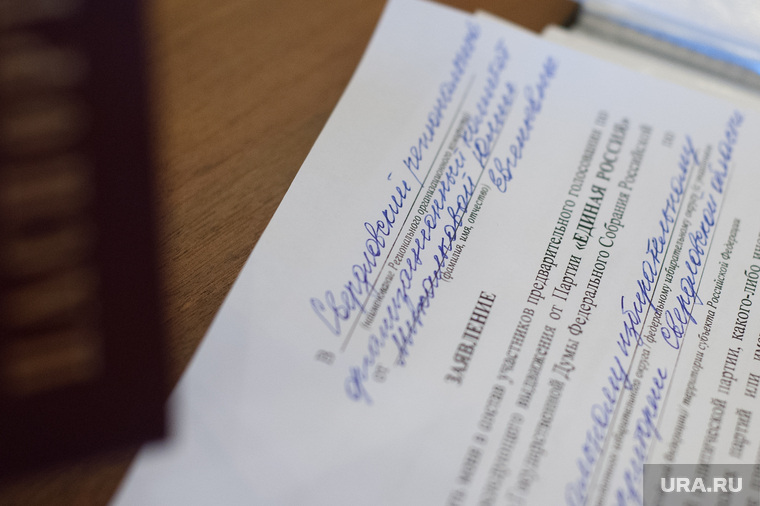 В Свердловский региональный
(наименование Регионального организационного комитета)
организационный комитет
от Михалковой Юлии
Евгеньевны
(фамилия, имя, отчество)
ЗАЯВЛЕНИЕ
меня в состав участников предварительного голосования по
последующего выдвижения от Партии «ЕДИНАЯ РОССИЯ»
Государственной Думы Федерального Собрания Российской
по
избирательному
округа / федеральному избирательному округу
территории Свердловской области
территории субъекта Российской Федерации
политической партии, какого-либо
партий или
URA.RU